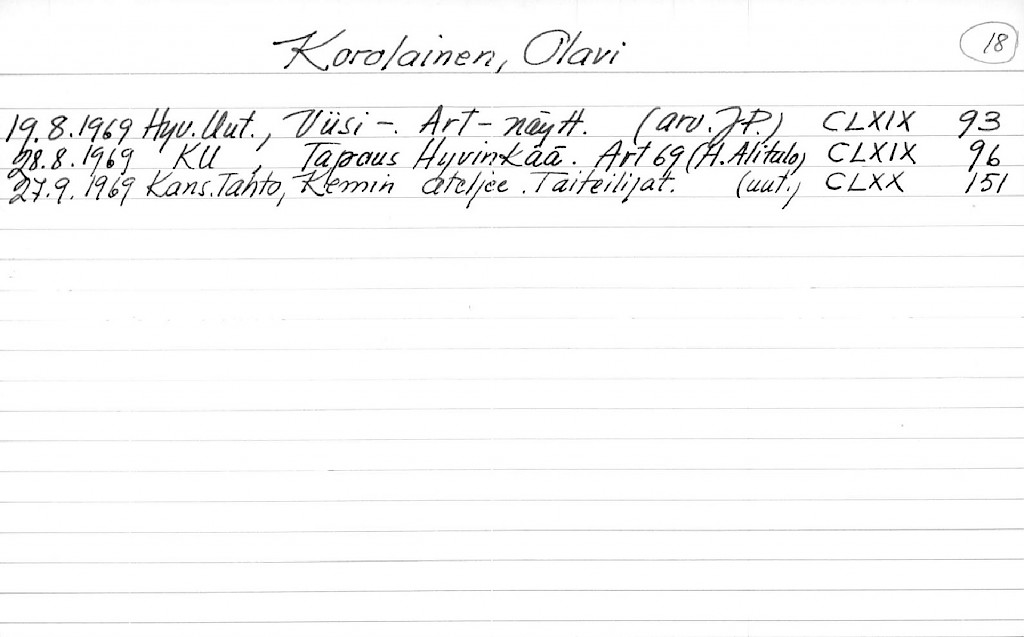 Korolainen, Olavi
18
19.8.1969 Hyv. Uut., Viisi-. Art-näytt. (arv. J.P.) CLXIX 93
28.8.1969 KU, Tapaus Hyvinkää. Art 69 (H. Alitalo) CLXIX 96
27.9.1969 Kans. Tahto, Kemin ateljee. Taiteilijat. (uut.) CLXX 151